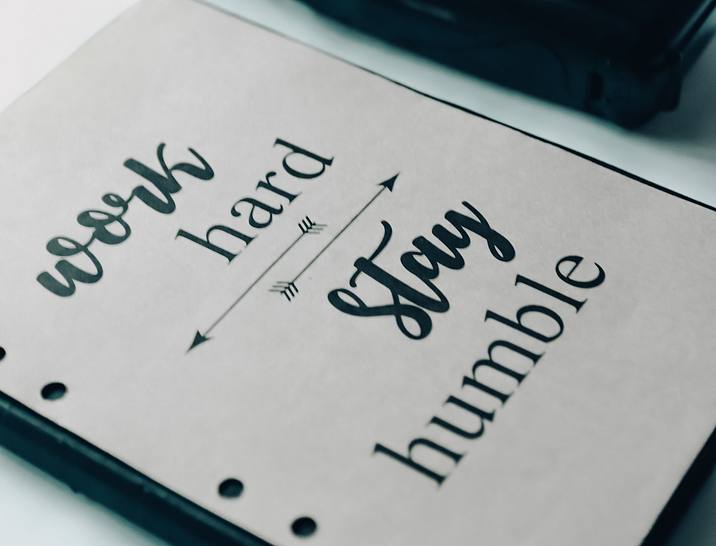 work
hard
Stay
humble